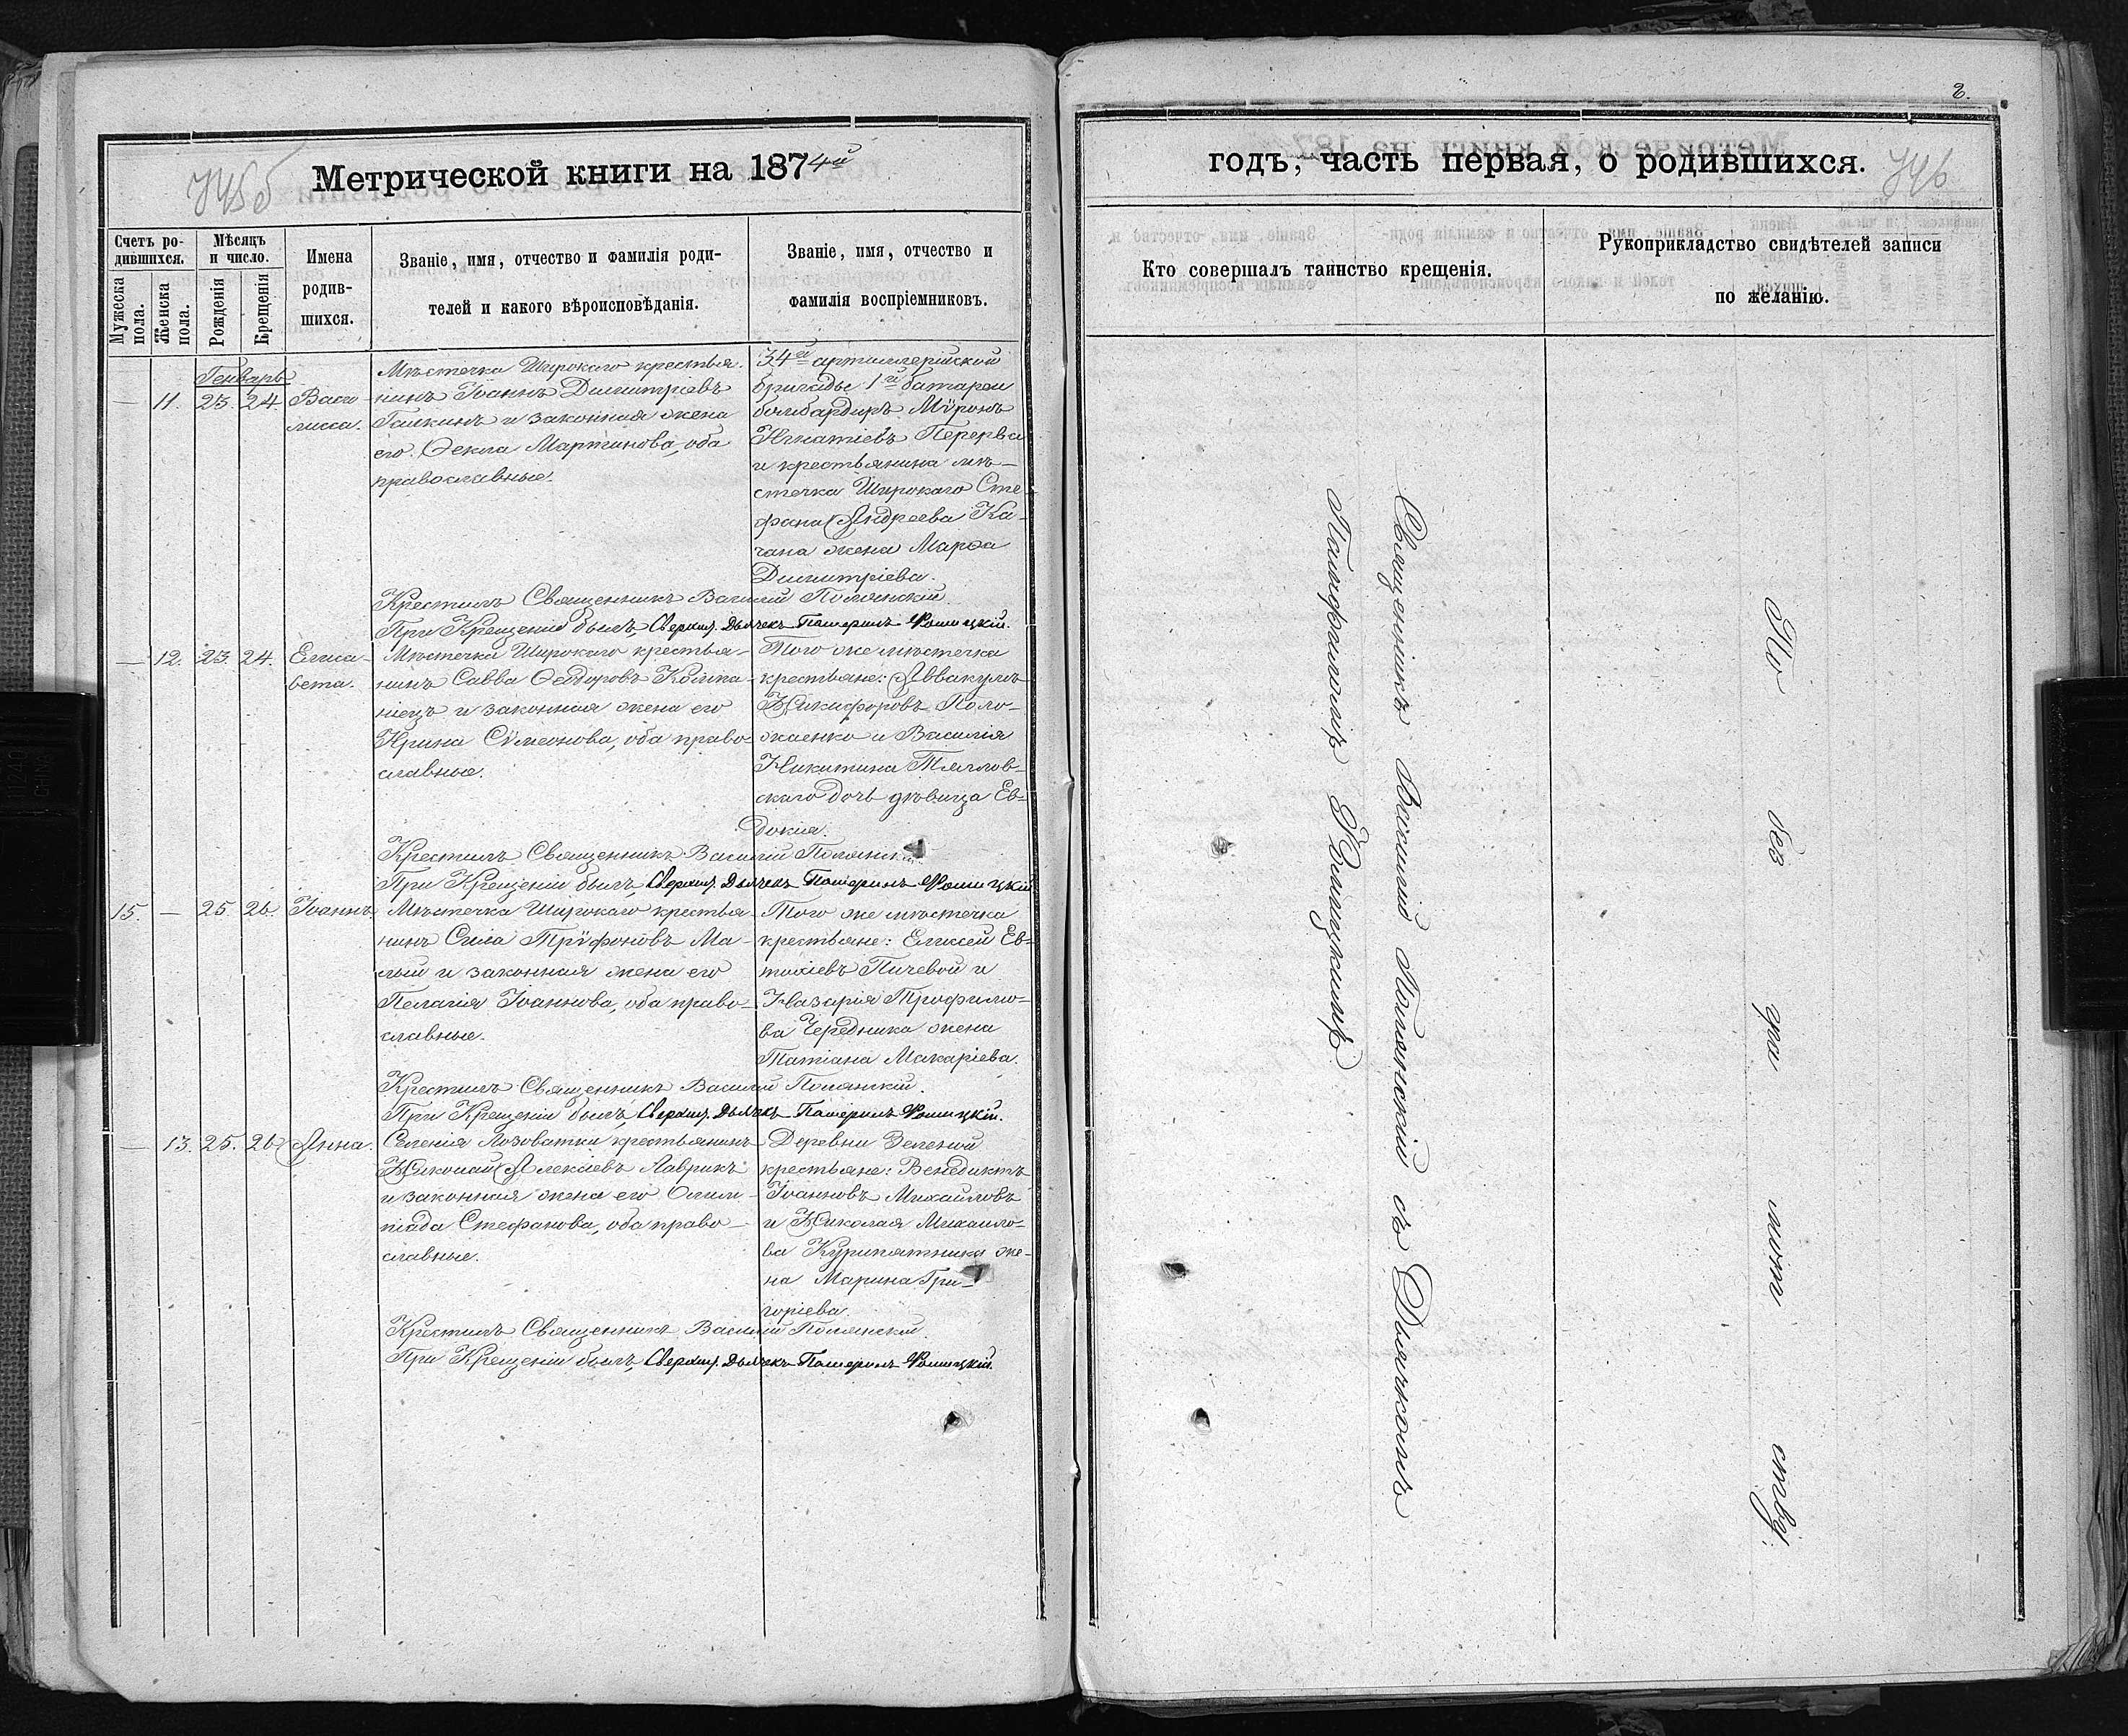 745б
Метрической книги на 1874й
Счетъ ро-
дившихся.
Мужеска
пола.
Женска
пола.
Мѣсяцъ
и число.
Рожденія
Крещенія
Имена
родив-
шихся.
Званіе, имя, отчество и фамилія роди-
телей и какого вѣроисповѣданія.
Званіе, имя, отчество и
фамилія воспріемниковъ.
Генварь
— 11. 23. 24. Васи-
лисса.
Мѣстечка Широкаго крестья-
нинъ Іоаннъ Димитріевъ
Галкинъ и законная жена
его Ѳекла Мартинова, оба
православные.
34й артиллерійской
бригады 1й батареи
бомбардиръ Мѵронъ
Игнатіевъ Перерва
и крестьянина мѣ-
стечка Широкаго Сте-
фана Андреева Ка-
чана жена Марѳа
Димитріева.
Крестилъ Священникъ Василій Полянскій
При Крещеніи былъ, Сверхш. Дьячекъ Памфилъ Фомицкій.
— 12. 23. 24. Елиса-
вета.
Мѣстечка Широкаго крестья-
нинъ Савва Ѳеодоровъ Компа-
ніецъ и законная жена его
Ирина Сѵмеонова, оба право-
славные.
Того же мѣстечка
крестьяне: Аввакумъ
Никифоровъ Поло-
жаенко и Василія
Никитина Тялов-
скаго дочь дѣвица Ев-
докія.
Крестилъ Священникъ Василій Полянскій
При Крещеніи былъ, Сверхш. Дьячекъ Памфилъ Фомицкій
15. — 25. 26. Іоаннъ
Мѣстечка Широкаго крестья-
нинъ Сила Трѵфоновъ Ма-
лый и законная жена его
Пелагія Іоаннова, оба право-
славные.
Того же мѣстечка
крестьяне: Елисей Ев-
тихіевъ Пичевой и
Назарія Трофимо-
ва Чередника жена
Татіана Макаріева.
Крестилъ Священникъ Василій Полянскій
При Крещеніи былъ, Сверхш. Дьячекъ Памфилъ Фомицкій.
— 13. 25. 26 Анна.
Селенія Лозоватки крестьянинъ
Николай Алексіевъ Лаврикъ
и законная жена его Олим-
піада Стефанова, оба право-
славные.
Деревни Зеленой
крестьяне: Венедиктъ
Іоанновъ Михаиловъ
и Николая Михаило-
ва Курипятника же-
на Марина Гри-
горіева.
Крестилъ Священникъ Василій Полянскій.
При Крещеніи былъ, Сверхш. Дьячекъ Памфилъ Фомицкій.
2.
годъ, часть первая, о родившихся.
746
Кто совершалъ таинство крещенія.
Рукоприкладство свидѣтелей записи
по желанію.
Священникъ Василій Полянскій съ Дьячкомъ
Памфиломъ Фомицкимъ
По без гра мотн ству.